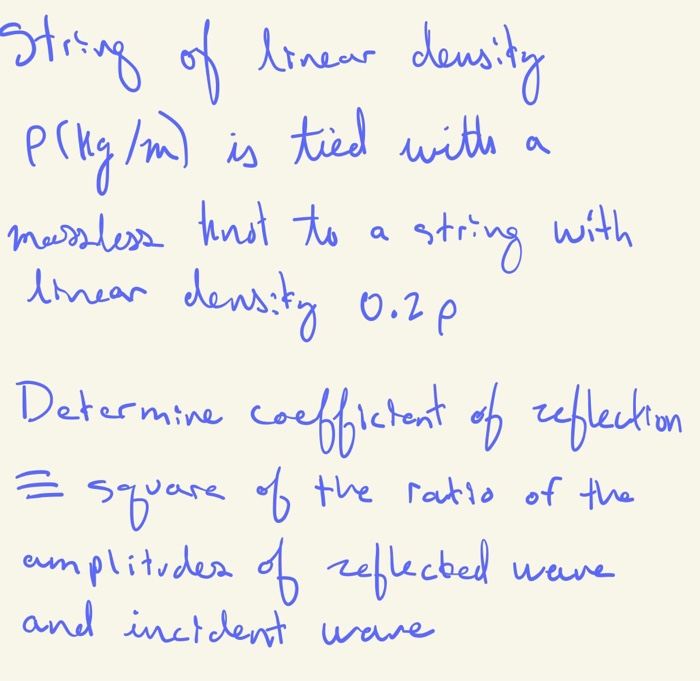 String of linear density
ρ(kg/m) is tied with a
massless knot to a string with
linear density 0.2ρ
Determine coefficient of reflection
≡ square of the ratio of the
amplitudes of reflected wave
and incident wave